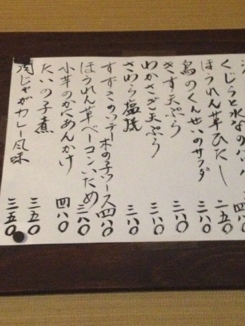 くじらと水なの
ほうれん草ひたし 二五〇
鳥のくんせいのサラダ 三八〇
きす天ぷら 三八〇
わかさぎ天ぷら 三八〇
さわら塩焼 三八〇
すずきのソテー木の子ソース 四八〇
ほうれん草ベーコンいため 三八〇
小芋のかにあんかけ 四八〇
たいの子煮 三五〇
肉じゃがカレー風味 三五〇